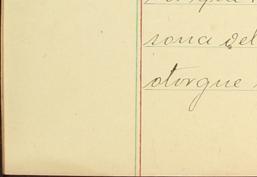 sona del
otorgue